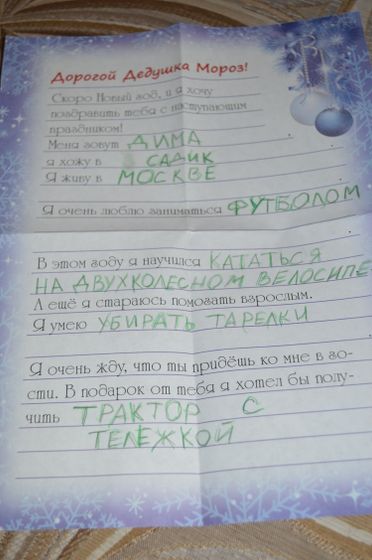 Дорогой Дедушка Мороз!
Скоро Новый год, и я хочу
поздравить тебя с наступающим
праздником!
Меня зовут ДИМА.
я хожу в САДИК
Я живу в МОСКВЕ.
Я очень люблю заниматься ФУТБОЛОМ
В этом году я научился КАТАТЬСЯ
НА ДВУХКОЛЕСНОМ ВЕЛОСИПЕ
А ещё я стараюсь помогать взрослым.
Я умею УБИРАТЬ ТАРЕЛКИ.
Я очень жду, что ты придёшь ко мне в го-
сти. В подарок от тебя я хотел бы полу-
чить ТРАКТОР С
ТЕЛЕЖКОЙ